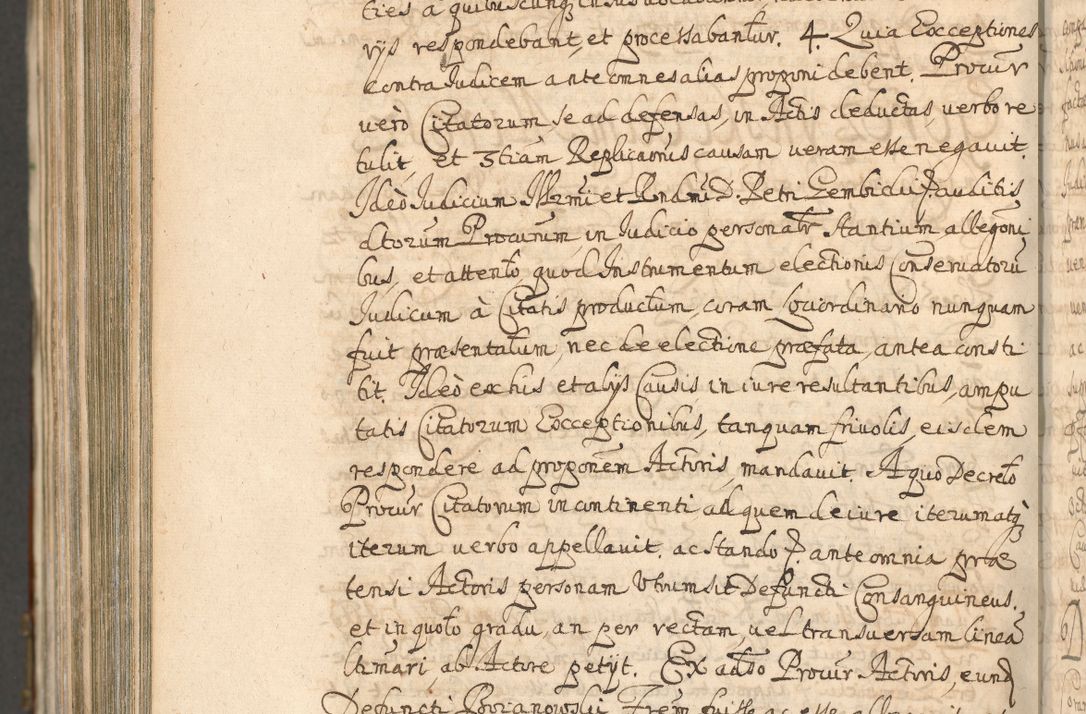 ties a quibuscunq
rijs respondebant, et processabantur. 4. Quia Exceptiones
contra Judicem ante omnes alias proponi debent. Procur
verò Citatorum, se ad defensas, in Actis deductas, verbo re
tulit, et 3tiam Replicaonis causam veram esse negavit.
Ideò Judicium Illrmi et Rndmi D. Petri Gembicki P. auditis
dtorum Procurum, in Judicio personalr stantium, allegoni
bus, et attento quod Instrumentum electionis Conservatorū
Judicum à Citatis productum, coram Loci ordinario nunquam
fuit præsentatum, nec de electione præfata, antea consti
tit. Ideò ex his et alijs Causis, in iure resultantibus, ampu
tatis Citatorum Exceptionibus, tanquam frivolis, eisdem
respondere ad proponem Actoris, mandavit. A quo Decreto
Procur Citatorum incontinenti, ad quem de iure iterumatq
iterum verbo appellavit. ac stando P. ante omnia præ
tensi Actoris personam Utrum sit Defuncti Consanguineus,
et in quoto gradu, an per rectam, vel transversam lineā
lumari, ab Actore petijt. Ex adso Procur Actoris, eund
Defuncti Frem fuisse ac esse